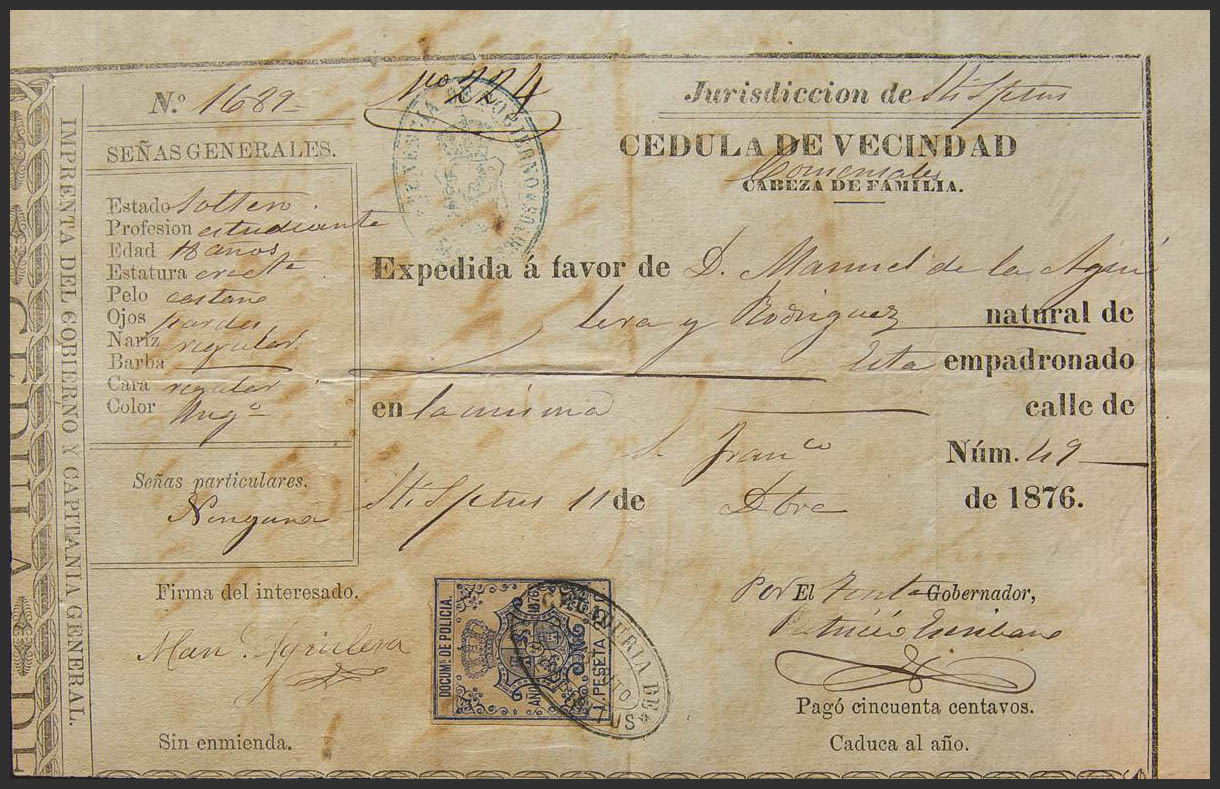 IMPRENTA DEL GOBIERNO Y CAPITANIA GENERAL.
N.º 1689
Nº 224
TENENCIA DE GOBIERNO
Jurisdiccion de Stî Sptus
SEÑAS GENERALES.
Estado Soltero
Profesion estudiante
Edad 18 años
Estatura recta
Pelo castaño
Ojos pardos
Nariz regular
Barba
Cara regular
Color
Señas particulares.
Ninguna
CEDULA DE VECINDAD
Comensales
CABEZA DE FAMILIA.
Expedida á favor de D. Manuel de la Agui
lera y Rodriguez natural de
Esta empadronado
en la misma calle de
S. Franco Núm. 49
Stî Sptus 11 de Dbre de 1876.
Firma del interesado.
Man. Aguilera
Sin enmienda.
DOCUMº DE POLICIA.
AÑO 1876
1. PESETA
Por El Tente Gobernador,
Patricio Escribano
Pagó cincuenta centavos.
Caduca al año.